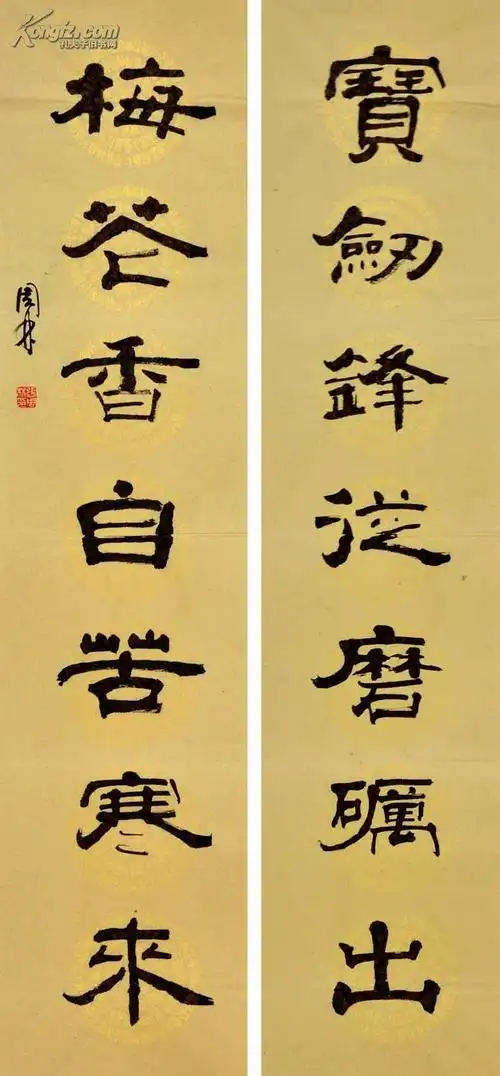 寶劒鋒從磨礪出
梅花香自苦寒來
Kongfz.com
孔夫子旧书网